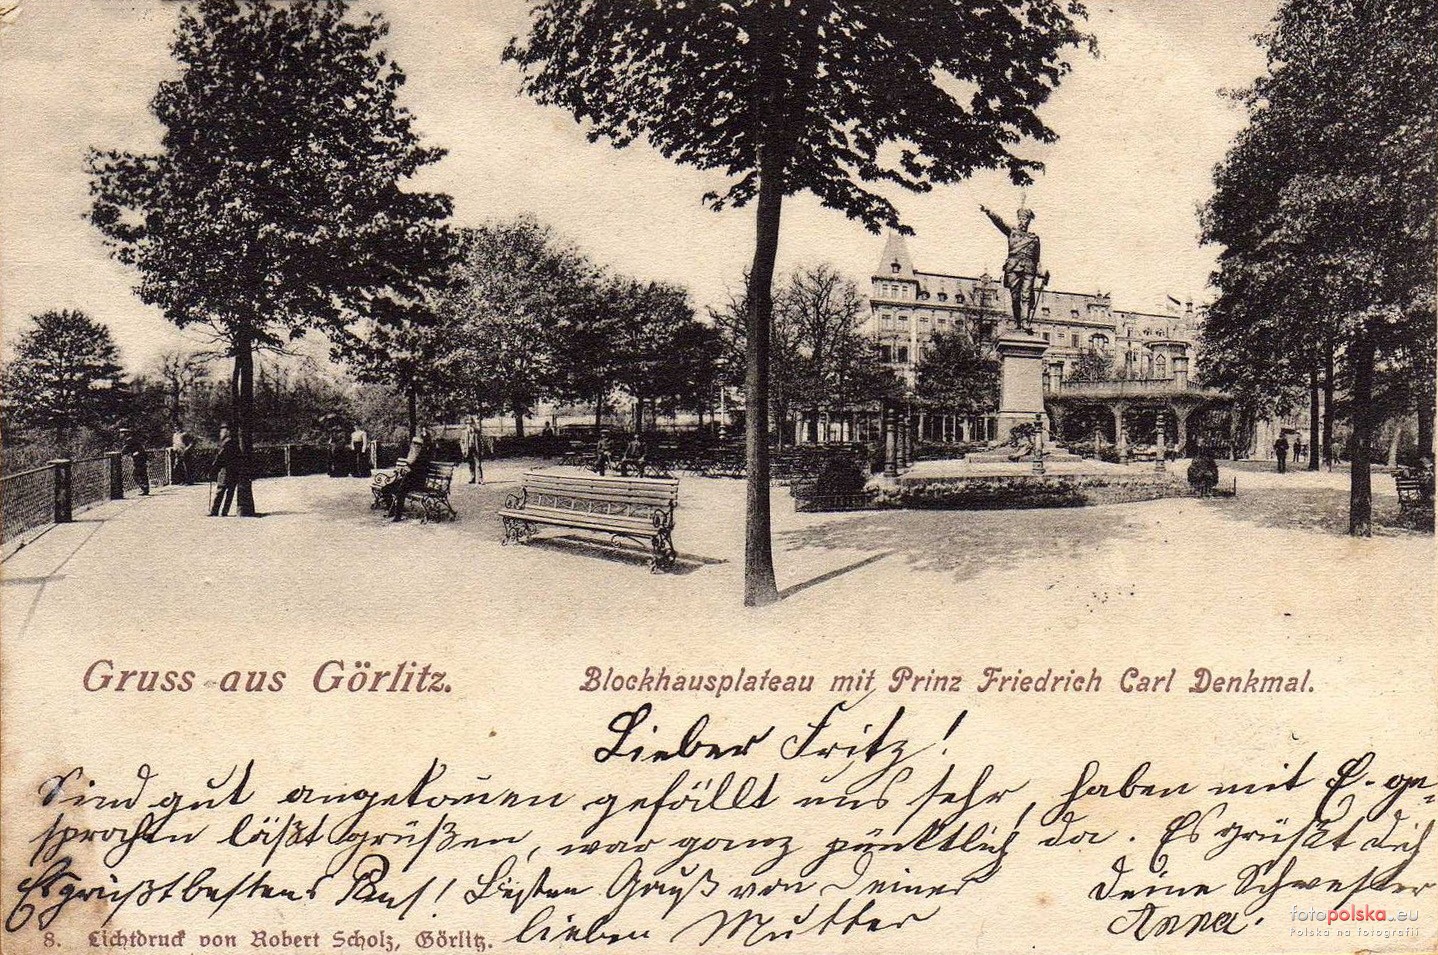 Gruss aus Görlitz.
Blockhausplateau mit Prinz Friedrich Carl Denkmal.
Lieber Fritz!
Sind gut angekommen gefällt uns sehr, haben mit E. ge-
sprochen läßt grüßen, war ganz pünktlich da. Es grüßt dich
Es grüßt bestens! Liebsten Gruß von Deiner
deine Schwester
lieben Mutter
Anna.
8. Lichtdruck von Robert Scholz, Görlitz.
fotopolska.eu
Polska na fotografii